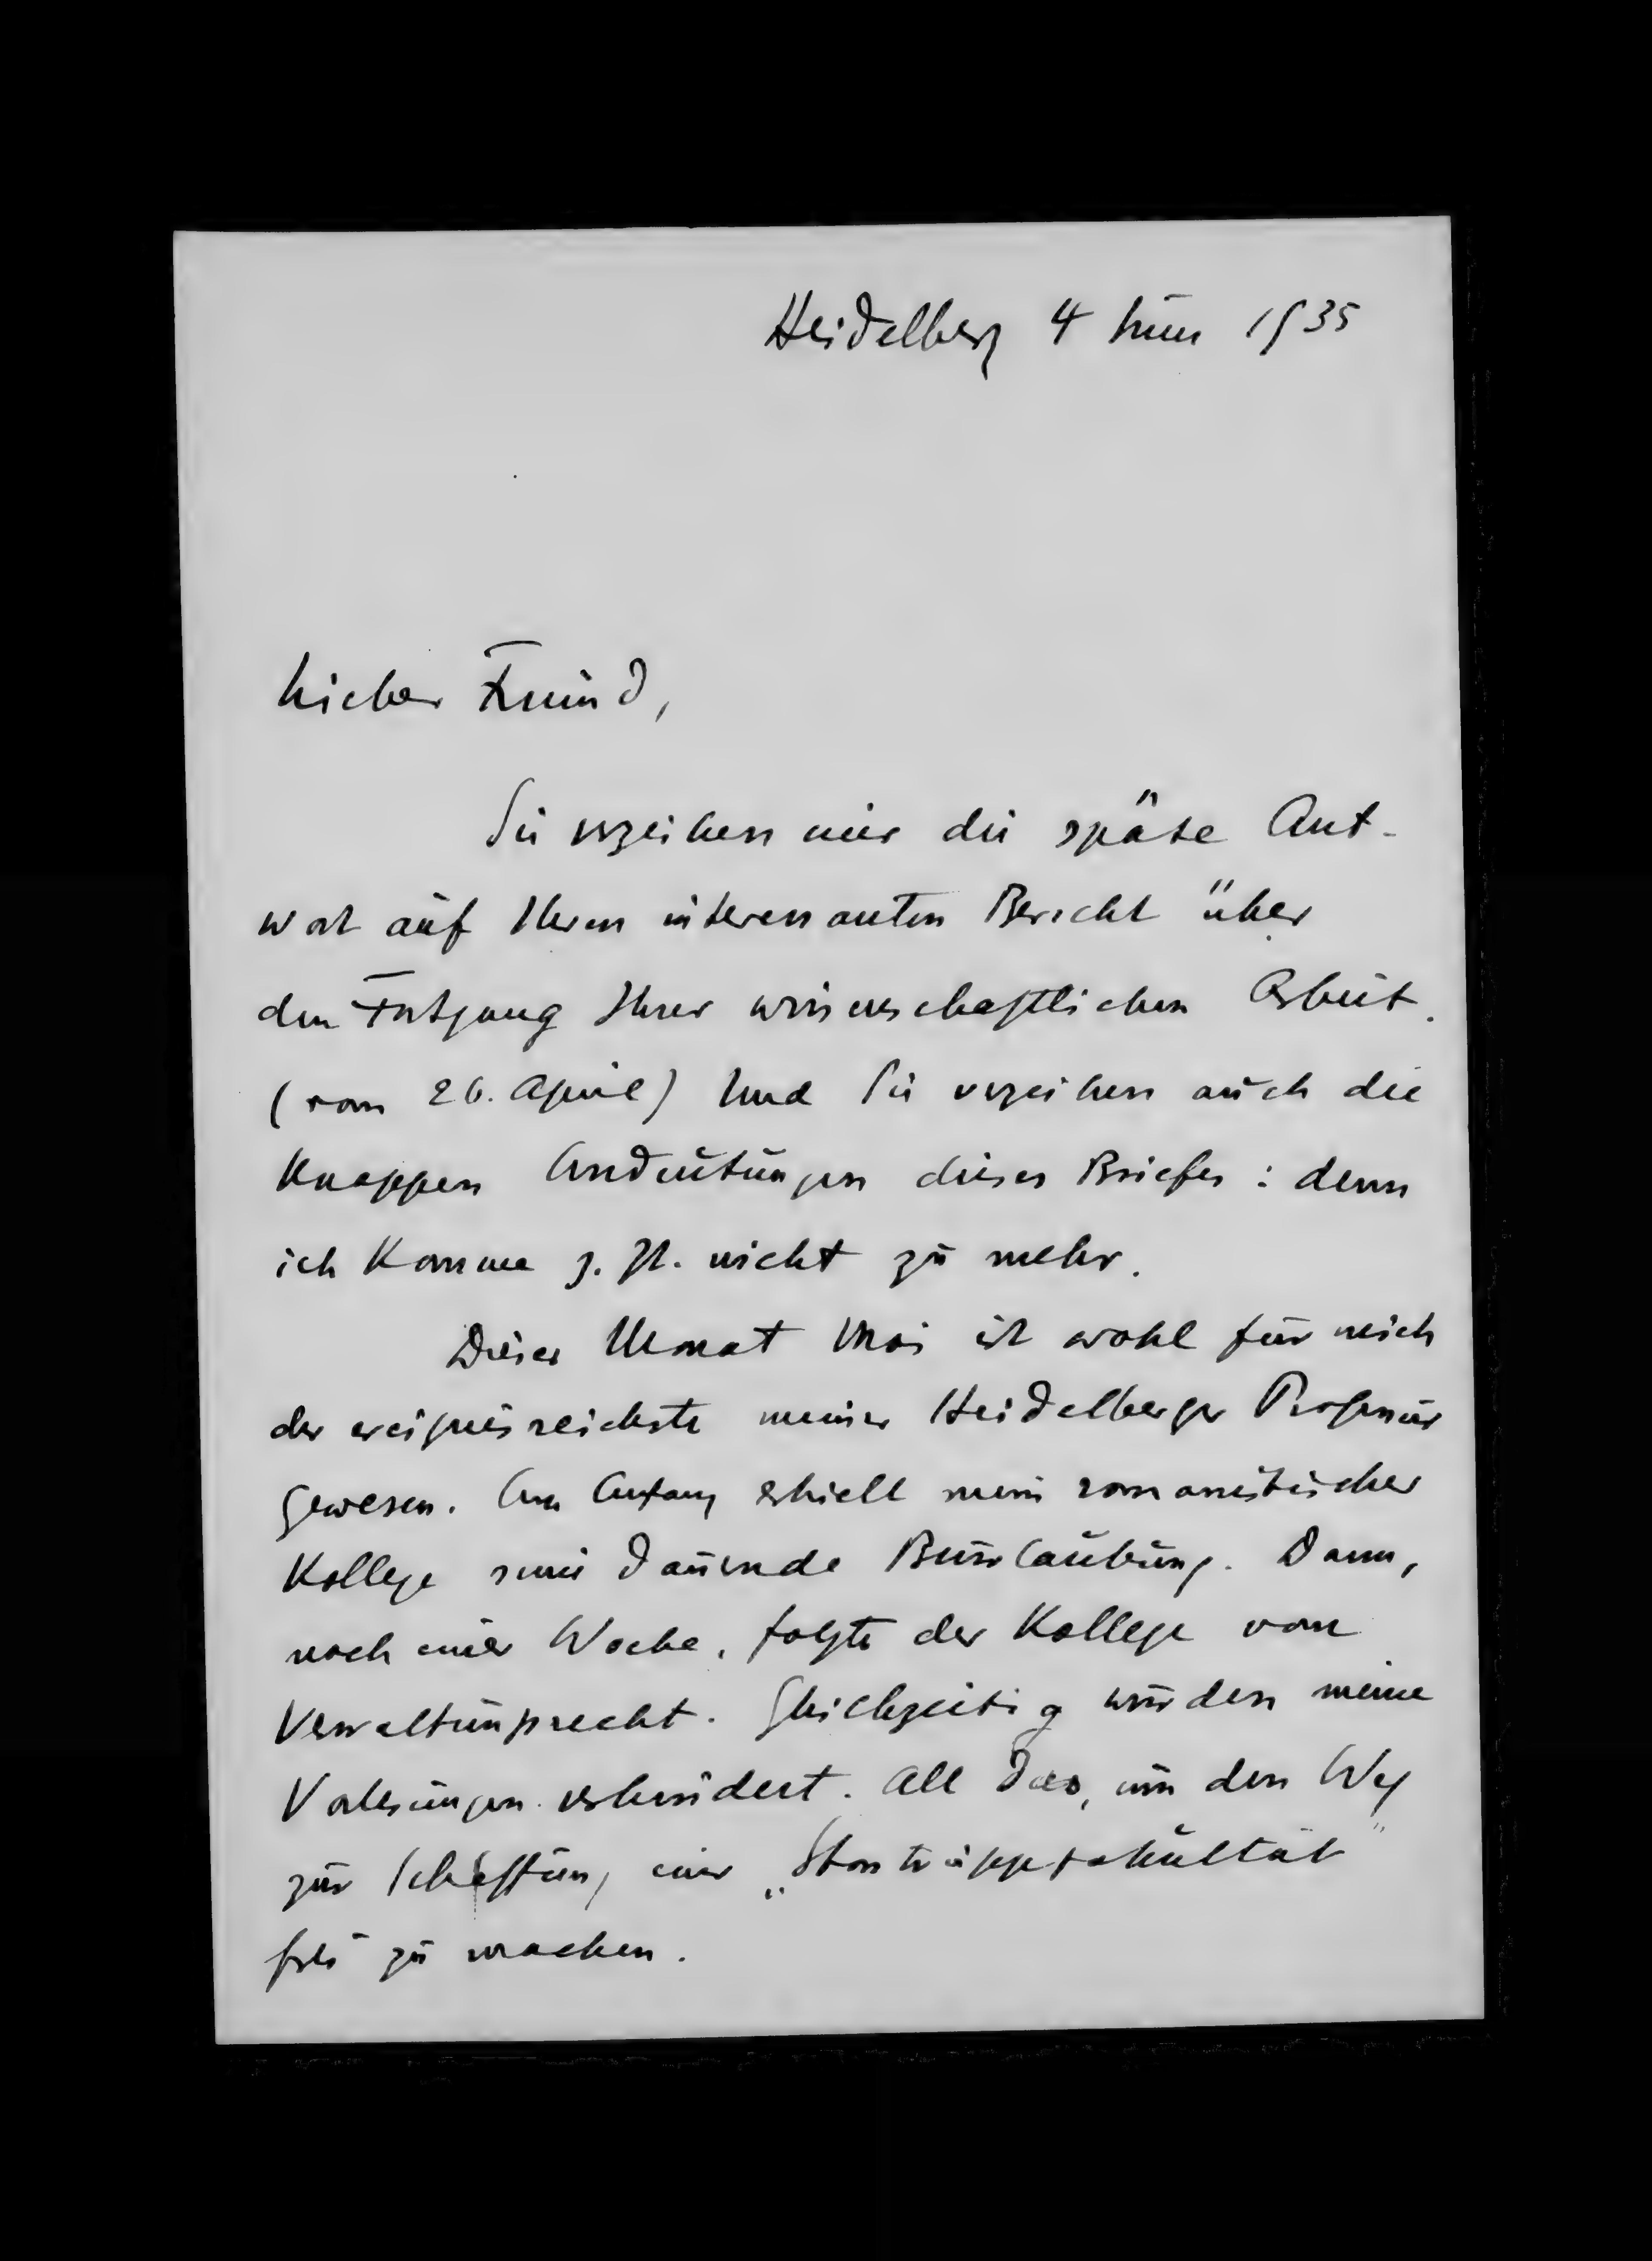 Heidelberg 4 Juni 1935
Lieber Freund,
Sie verzeihen mir die späte Ant-
wort auf Ihren interessanten Bericht über
den Fortgang Ihrer wissenschaftlichen Arbeit.
(vom 26. April) Und Sie verzeihen auch die
knappen Andeutungen dieses Briefes: denn
ich komme z. Zt. nicht zu mehr.
Dieser Monat Mai ist wohl für mich
der ereignisreichste meiner Heidelberger Professur
gewesen. Am Anfang erhielt mein romanistischer
Kollege seine dauernde Beurlaubung. Dann,
nach einer Woche, folgte der Kollege vom
Verwaltungsrecht. Gleichzeitig wurden meine
Vorlesungen verhindert. All das, um den Weg
zur Schaffung einer „Stoßtruppfakultät"
frei zu machen.